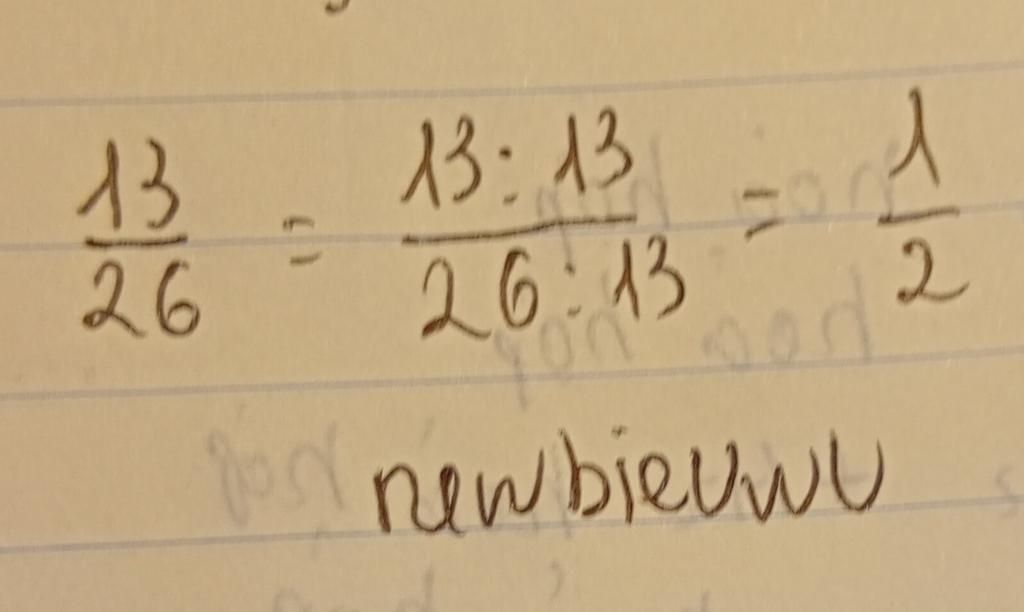 13/26 = 13:13/26:13 = 1/2
newbieuwu